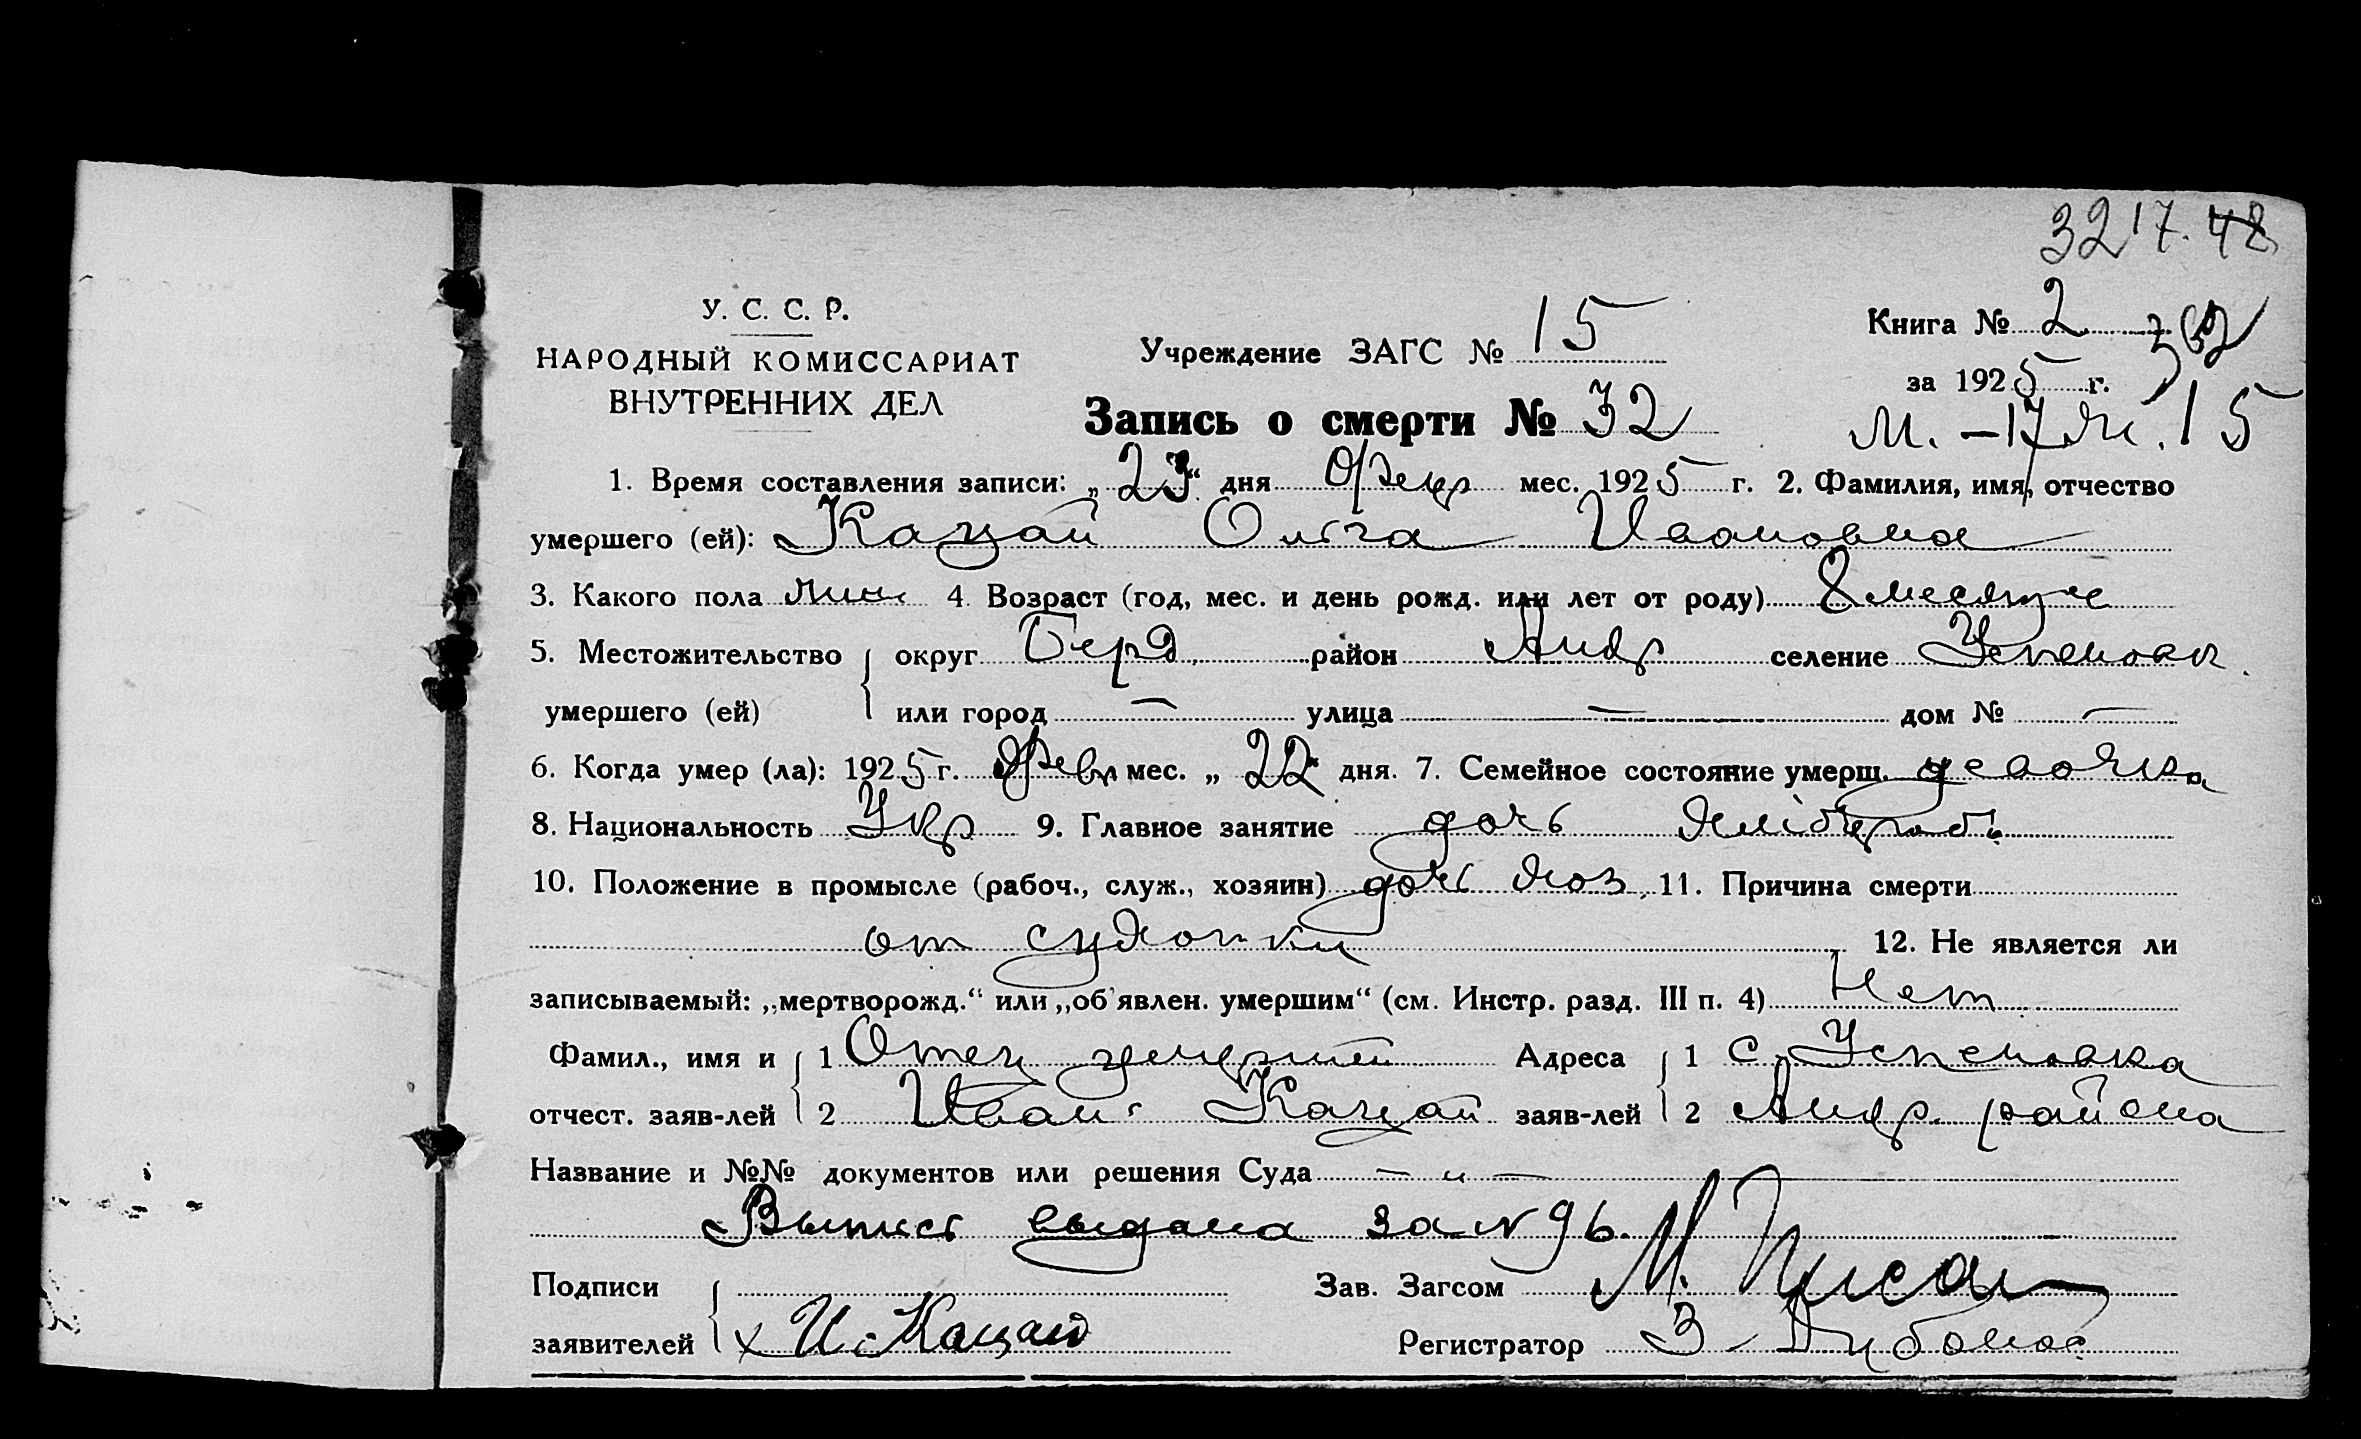 3217. 48
У. С. С. Р.
НАРОДНЫЙ КОМИССАРИАТ
ВНУТРЕННИХ ДЕЛ
Учреждение ЗАГС № 15
Книга № 2
за 1925 г.
Запись о смерти № 32
15
1. Время составления записи: „23“ дня февр мес. 1925 г. 2. Фамилия, имя, отчество
умершего (ей): Кацай Ольга Ивановна
3. Какого пола жинк 4. Возраст (год, мес. и день рожд. или лет от роду) 8 месяце
5. Местожительство округ Берд район Андр селение Успеновк
умершего (ей) или город — улица — дом № —
6. Когда умер (ла): 1925 г. Февр мес. „22“ дня. 7. Семейное состояние умерш. девочка
8. Национальность Укр 9. Главное занятие дочь хлібороб.
10. Положение в промысле (рабоч., служ., хозяин) дочь хоз 11. Причина смерти
от сухотки 12. Не является ли
записываемый: „мертворожд.“ или „об'явлен. умершим“ (см. Инстр. разд. III п. 4) Нет
Фамил., имя и 1 Отец умершей Адреса 1 с. Успеновка
отчест. заяв-лей 2 Иван Кацай заяв-лей 2 Андр. района
Название и №№ документов или решения Суда — „ —
Выпись выдана за № 96.
Подписи Зав. Загсом М. Писа
заявителей х И. Кацай Регистратор З